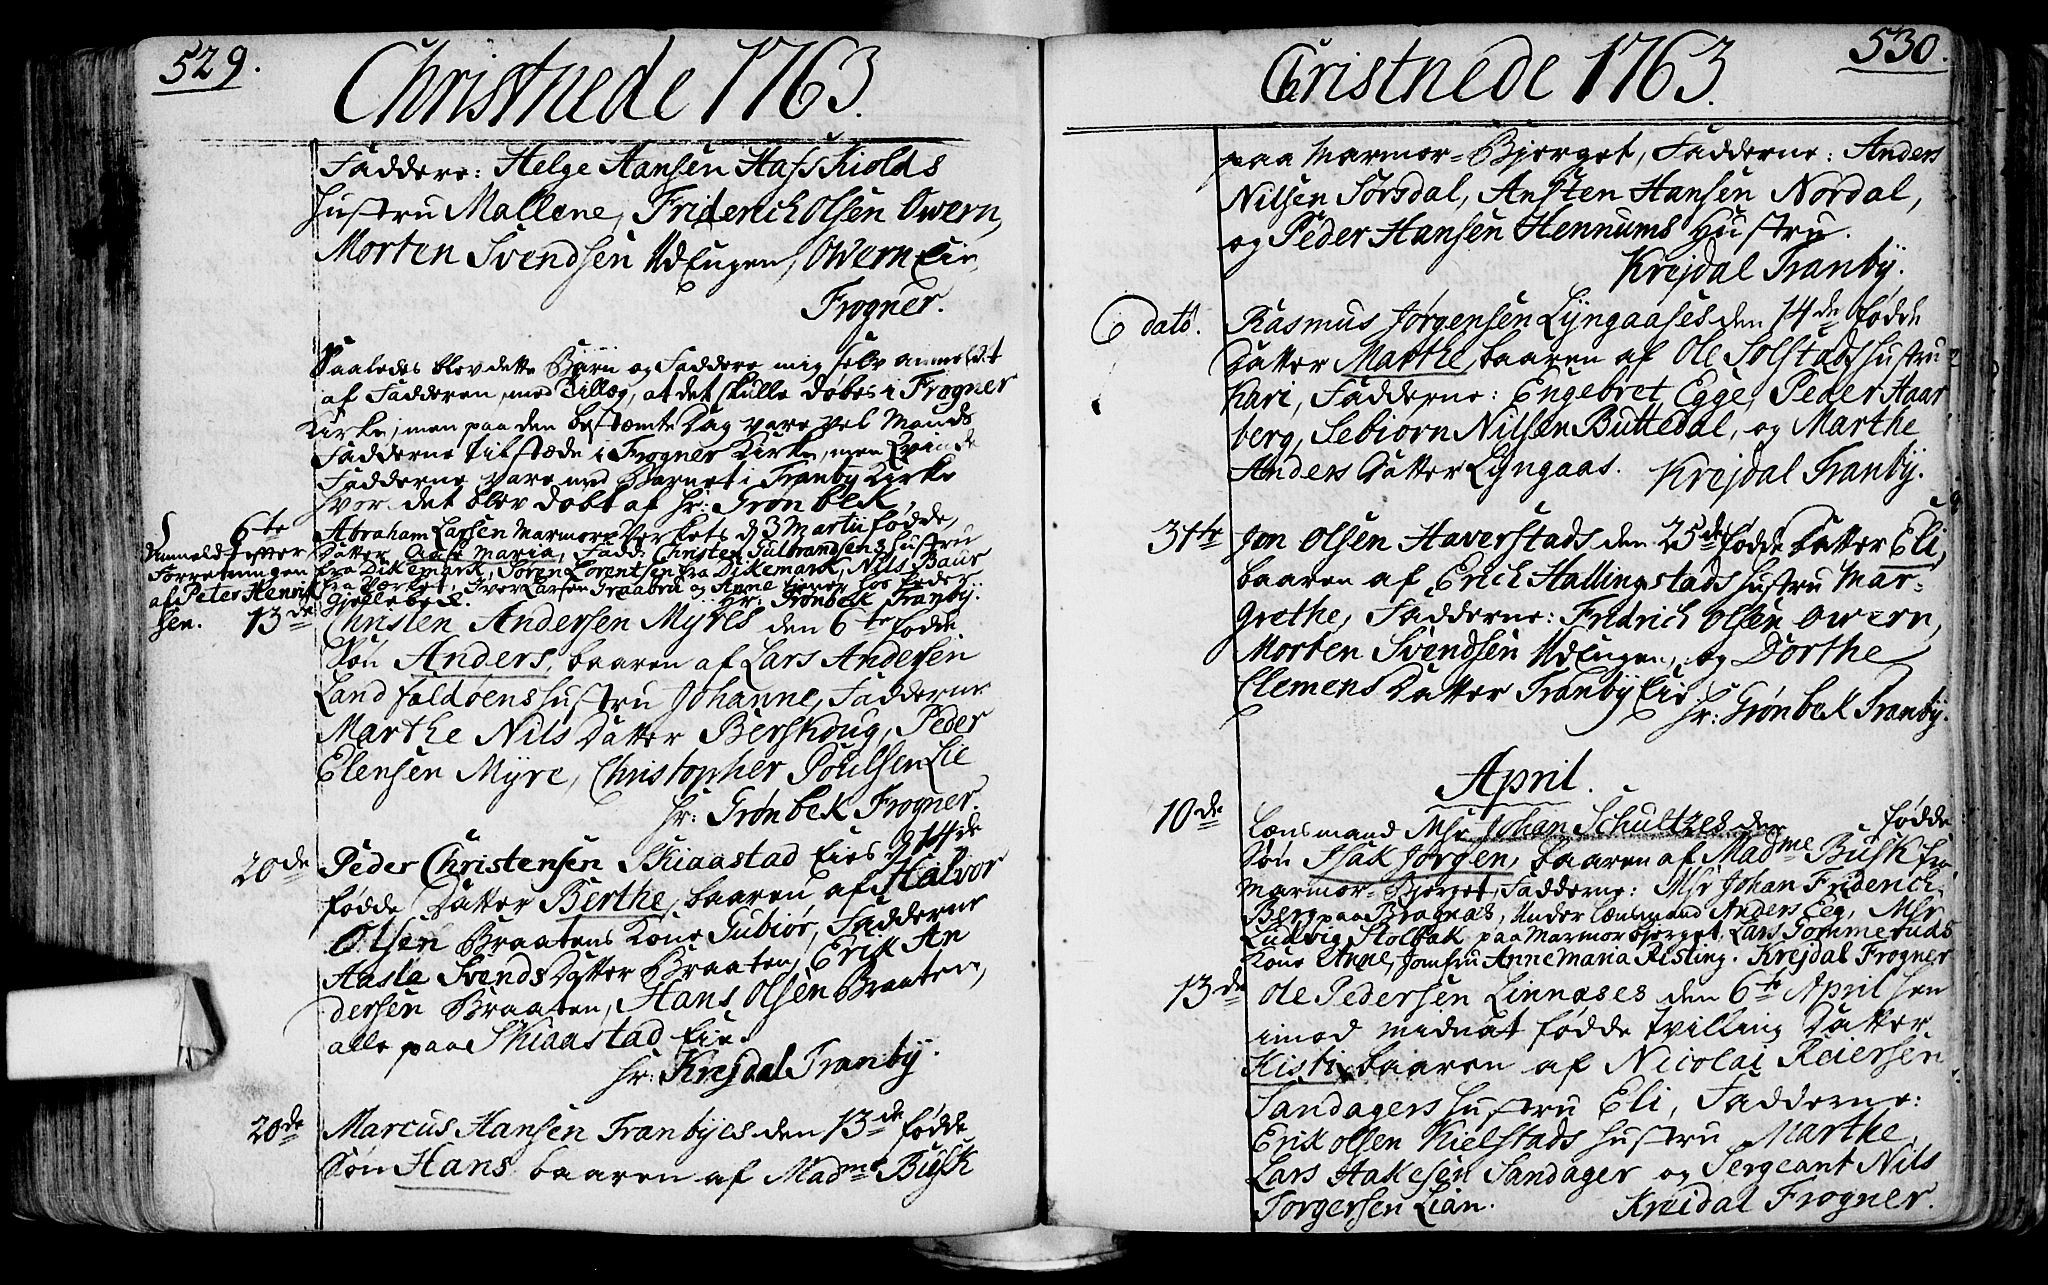 529.
Christnede 1763.
Faddere: Helge Hansen Hafskiolds
Hustru Mallene, Friderich Olsen Owern,
Morten Svendsen UdEngen, Owern Eie,
Frogner.
Saaledes blev dette Barn og Faddere mig selv anmeldet
af Fadderen, med Tillæg, at det skulle døbes i Frogner
Kirke, men paa den bestemte Dag vare vel Mands
Fadderne tilstæde i Frogner Kirke, men Qvinde
Fadderne vare med Barnet i Tranby Kirke
hvor det blev døbt af Hr: Grønbek
6te Abraham Larsen Marmor Verkets d 3 Martii fødde,
Anmeldt efter Datter Aase Maria, Fadd: Christen Gulbrandsens Hustru
Forretningen fra Dikemark, Søren Lorentsen fra Dikemark, Nils Baur
af Peter Henrik fra Værket, Iver Larsen Traaen og Anne tiener hos Peder
sen. Gjellebek. Hr: Grønbek Tranby.
13de Christen Andersen Myres den 6te fødde
Søn Anders, baaren af Lars Andersen
Landfaldøens Hustru Johanne, Fadderne
Marthe Nils Datter Berskoug, Peder
Elensen Myre, Christopher Poulsen Lie
Hr: Grønbek Frogner.
20de Peder Christensen Skiaastad Eies d 14de
fødde Datter Berthe, baaren af Halvor
Olsen Braatens Kone Gubiør, Fadderne
Aasle Svends Datter Braaten, Erik An
dersen Braaten, Hans Olsen Braaten,
alle paa Skiaastad Eie.
Hr: Krejdal Tranby.
20de Marcus Hansen Tranbyes den 13de fødde
Søn Hans baaren af Madme Busk
530.
Christnede 1763.
paa Marmor-Bjerget, Fadderne: Anders
Nilsen Sørsdal, Ansten Hansen Nordal,
og Peder Hansen Hennums Hustru.
Krejdal Tranby.
dato. Rasmus Jørgensen Lyngaases den 14de fødde
Datter Marthe, baaren af Ole Solstads Hustru
Kari, Fadderne: Engebret Egge, Peder Haar
berg, Sebiørn Nilsen Buttedal, og Marthe
Anders Datter Lyngaas. Krejdal Tranby.
31te Jon Olsen Haverstads den 25de fødde Datter Eli,
baaren af Erich Hallingstads Hustru Mar-
grethe, Fadderne: Fridrich Olsen Owern,
Morten Svendsen UdEngen, og Dorthe
Clemens Datter Tranby Eie
Hr: Grønbek Tranby.
April.
10de Lensmand Msr Johan Schultzes den fødde
Søn Isak Jørgen, baaren af Madme Busk fra
Marmor-Bjerget, Fadderne: Msr Johan Friderich
Berg paa Bragnæs, Under Lensmand Anders Eeg, Msr
Ludvig Stolbak paa Marmorbjerget, Lars Gommeruds
Kone Anne, Jomfru Anne Maria Risting. Krejdal Frogner
13de Ole Pedersen Linnæses den 6te April hen
imod midnat fødde tvilling Datter
Kisti, baaren af Nicolai Reiersen
Sandagers Hustru Eli, Fadderne:
Erik Olsen Kielstads Hustru Marthe,
Lars Hakesen Sandager og Sergeant Nils
Torgersen Lian. Kreidal Frogner.